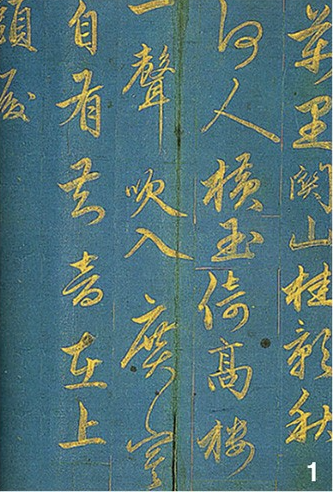 萬里關山桂影秋
何人橫玉倚高樓
一聲吹入廣寒
自有知音在上
頭
1